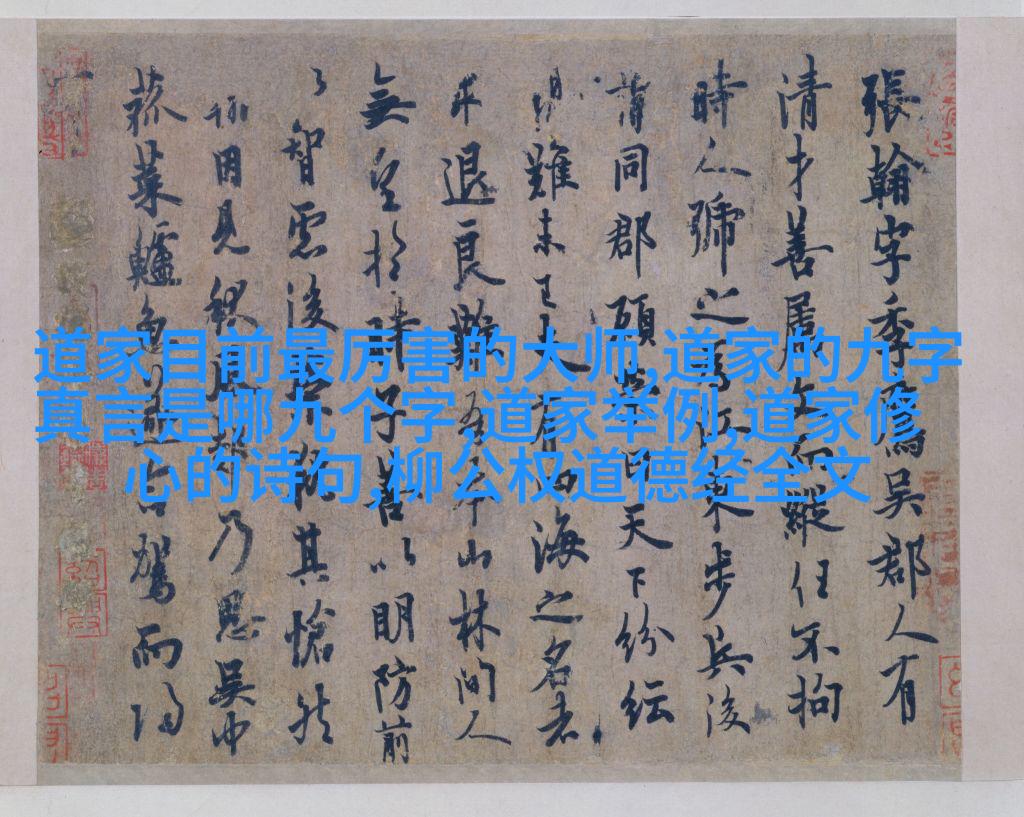 道家目前最厉害的大师,道家的九字
真言是哪九个字,道家举例,道家修
心的诗句,柳公权道德经全文
張翰字季鷹吳郡人有
清才善屬文而縱任不拘
時人號之為江東步兵後
同郡顧榮曰天下紛紜
難未已夫有四海之名者
求退良難吾本山林間人
無望於時子善以明防前
以智慮後榮執其愴然
因見秋風起乃思吳中
菰菜鱸魚遂命駕而歸